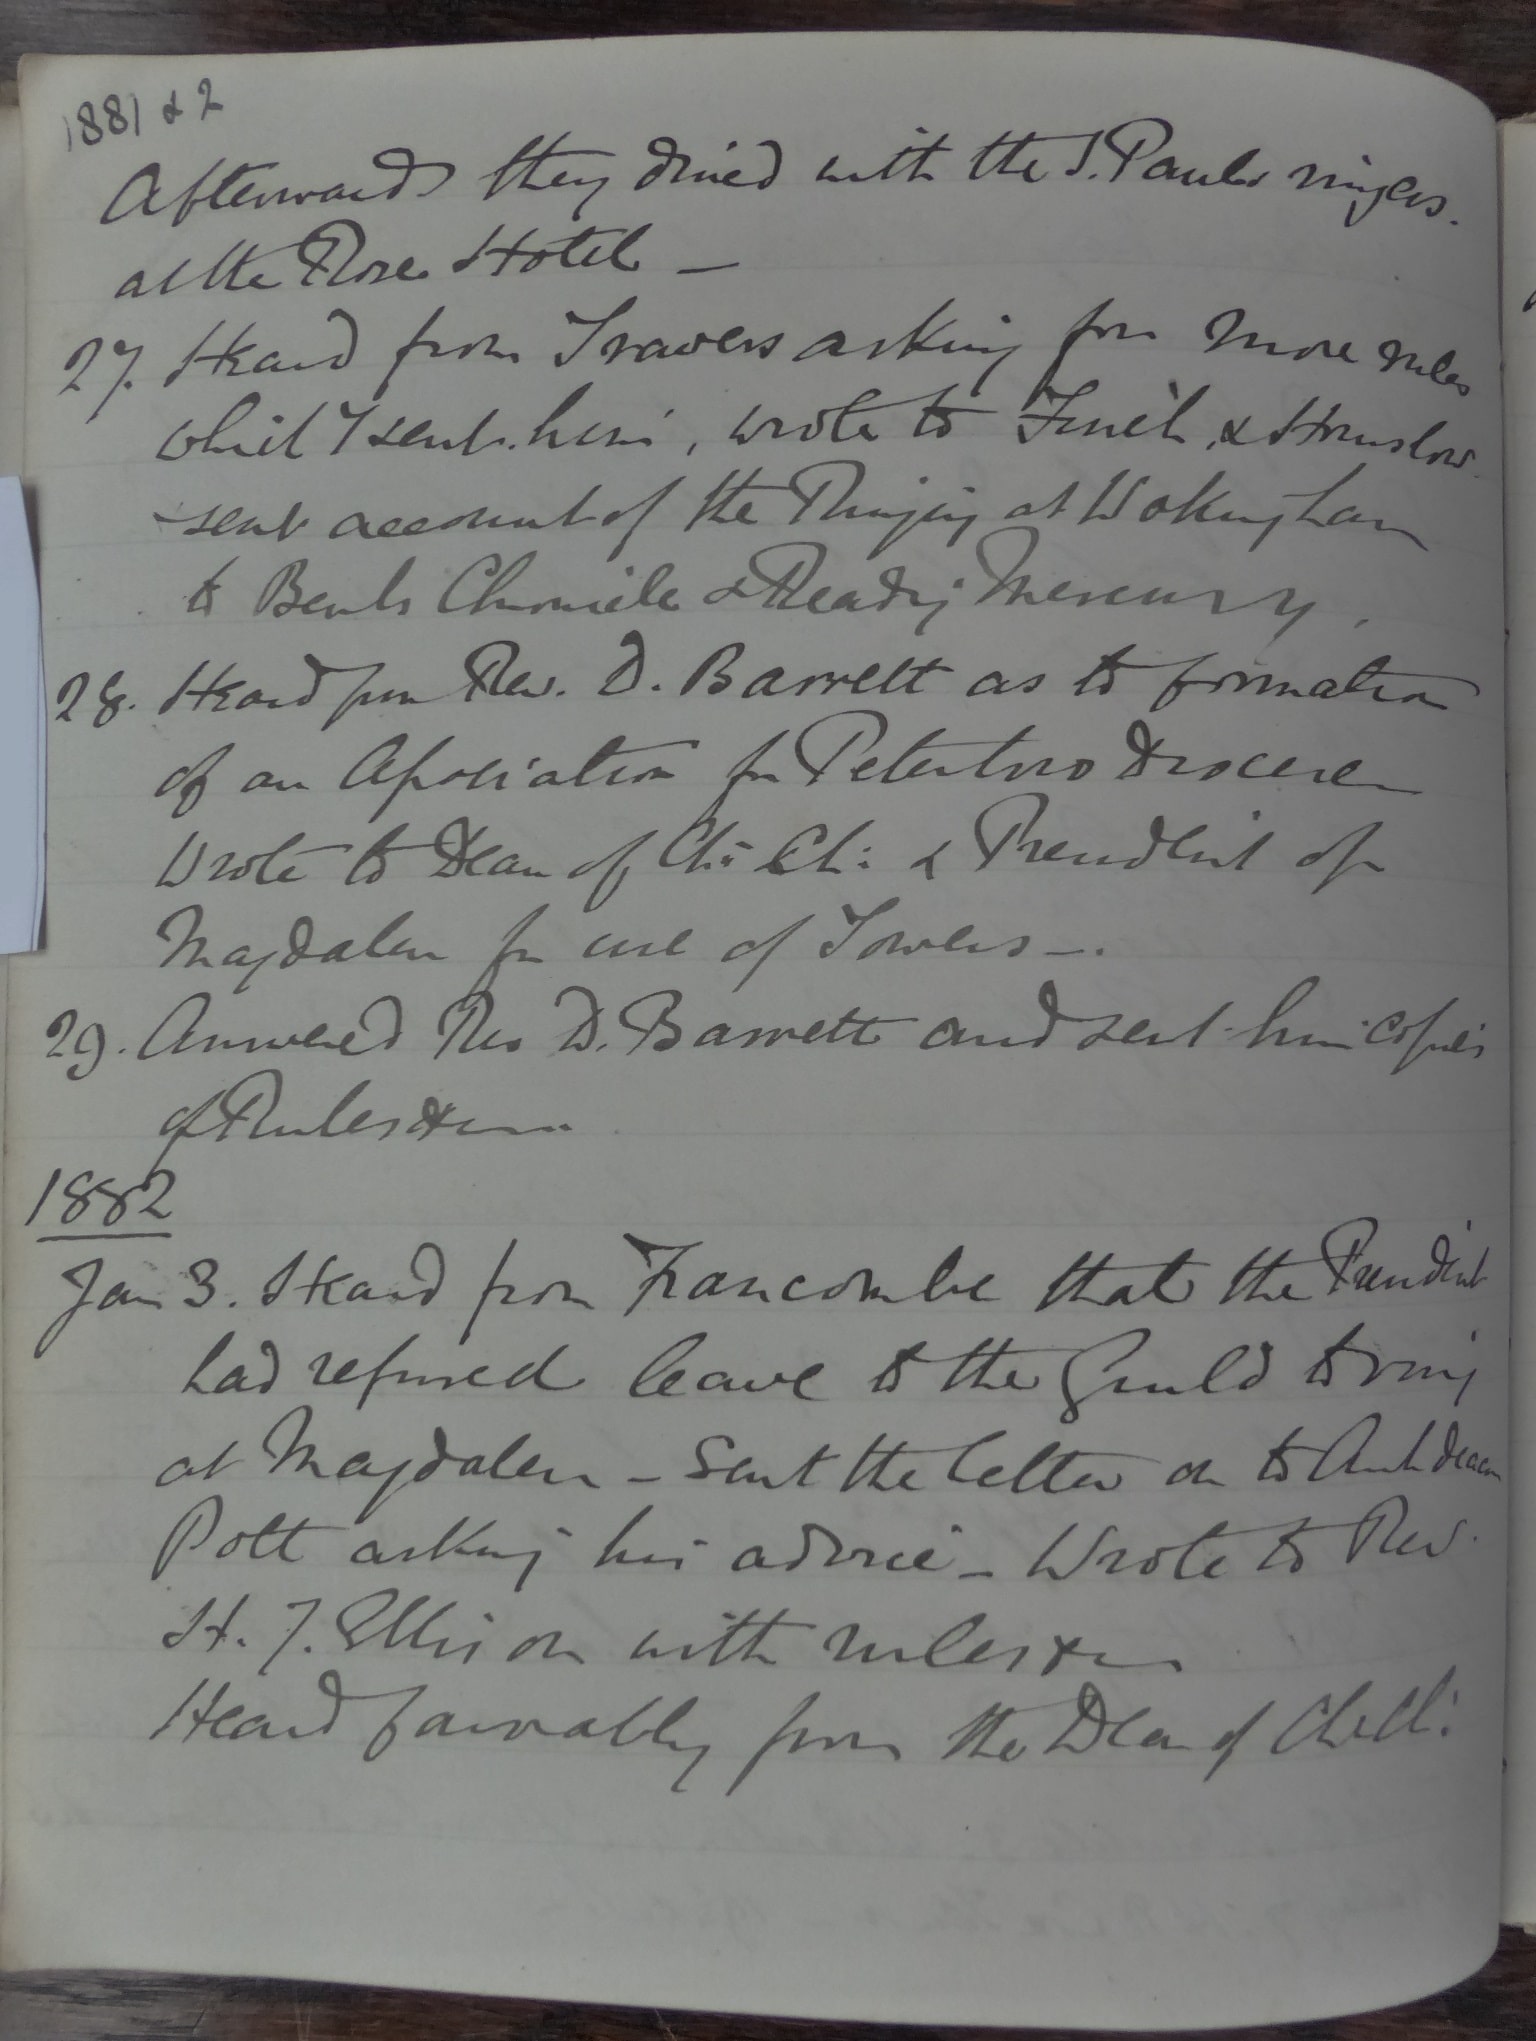 1881 & 2
Afterwards they dined with the S. Pauls ringers.
at the Rose Hotel —
27. Heard from Travers asking for more rules
which I sent him, wrote to Finch & Hounslow
sent account of the Ringing at Wokingham
to Bells Chronicle & Reading Mercury.
28. Heard from Rev. D. Barrett as to formation
of an Association for Peterboro Diocese
Wrote to Dean of Ch: Ch: & President of
Magdalen for use of Towers —.
29. Answered Rev D. Barrett and sent him copies
of Rules &c
1882
Jan 3. Heard from Francombe that the President
had refused leave to the Guild to ring
at Magdalen — Sent the letter on to Archdeacon
Pott asking his advice — Wrote to Rev.
H. J. Ellison with rules &c
Heard favourably from the Dean of Ch Ch: